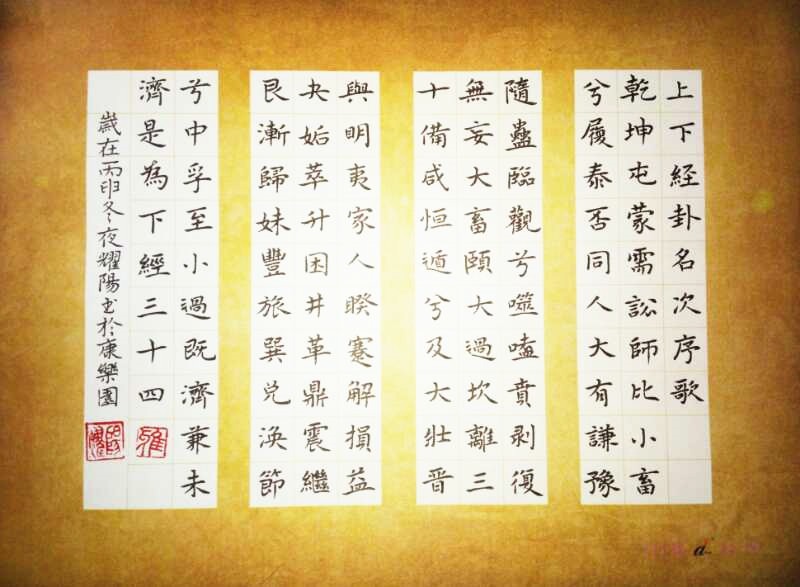 上下経卦名次序歌
乾坤屯蒙需訟師比小畜
兮履泰否同人大有謙豫
隨蠱臨觀兮噬嗑賁剥復
無妄大畜頤大過坎離三
十備咸恒遁兮及大壯晉
與明夷家人睽蹇解損益
夬姤萃升困井革鼎震繼
艮漸歸妹豐旅巽兑渙節
兮中孚至小過既濟兼未
濟是為下經三十四
歲在丙冬夜耀陽书於康樂園